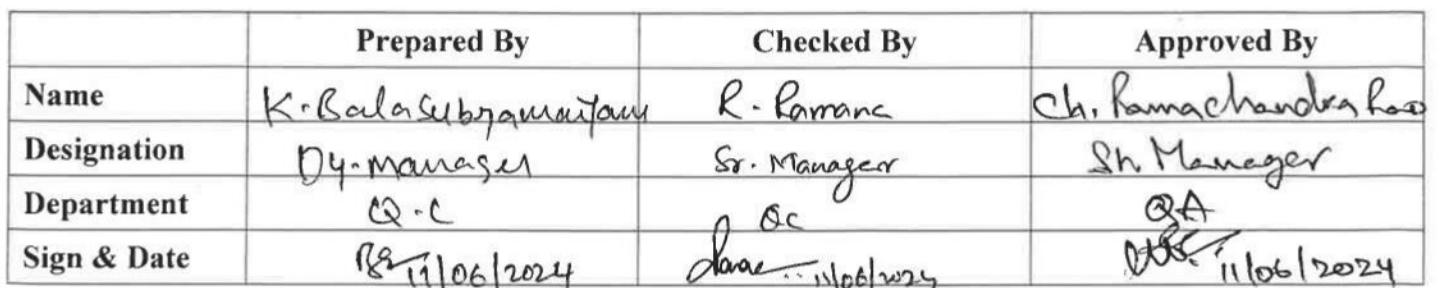 Prepared By Checked By Approved By
Name K. Balasubramaniyam R. Ramana Ch. Ramachandra Rao
Designation Dy. Manager Sr. Manager Sr. Manager
Department Q.C QC QA
Sign & Date 11/06/2024 11/06/2024 11/06/2024